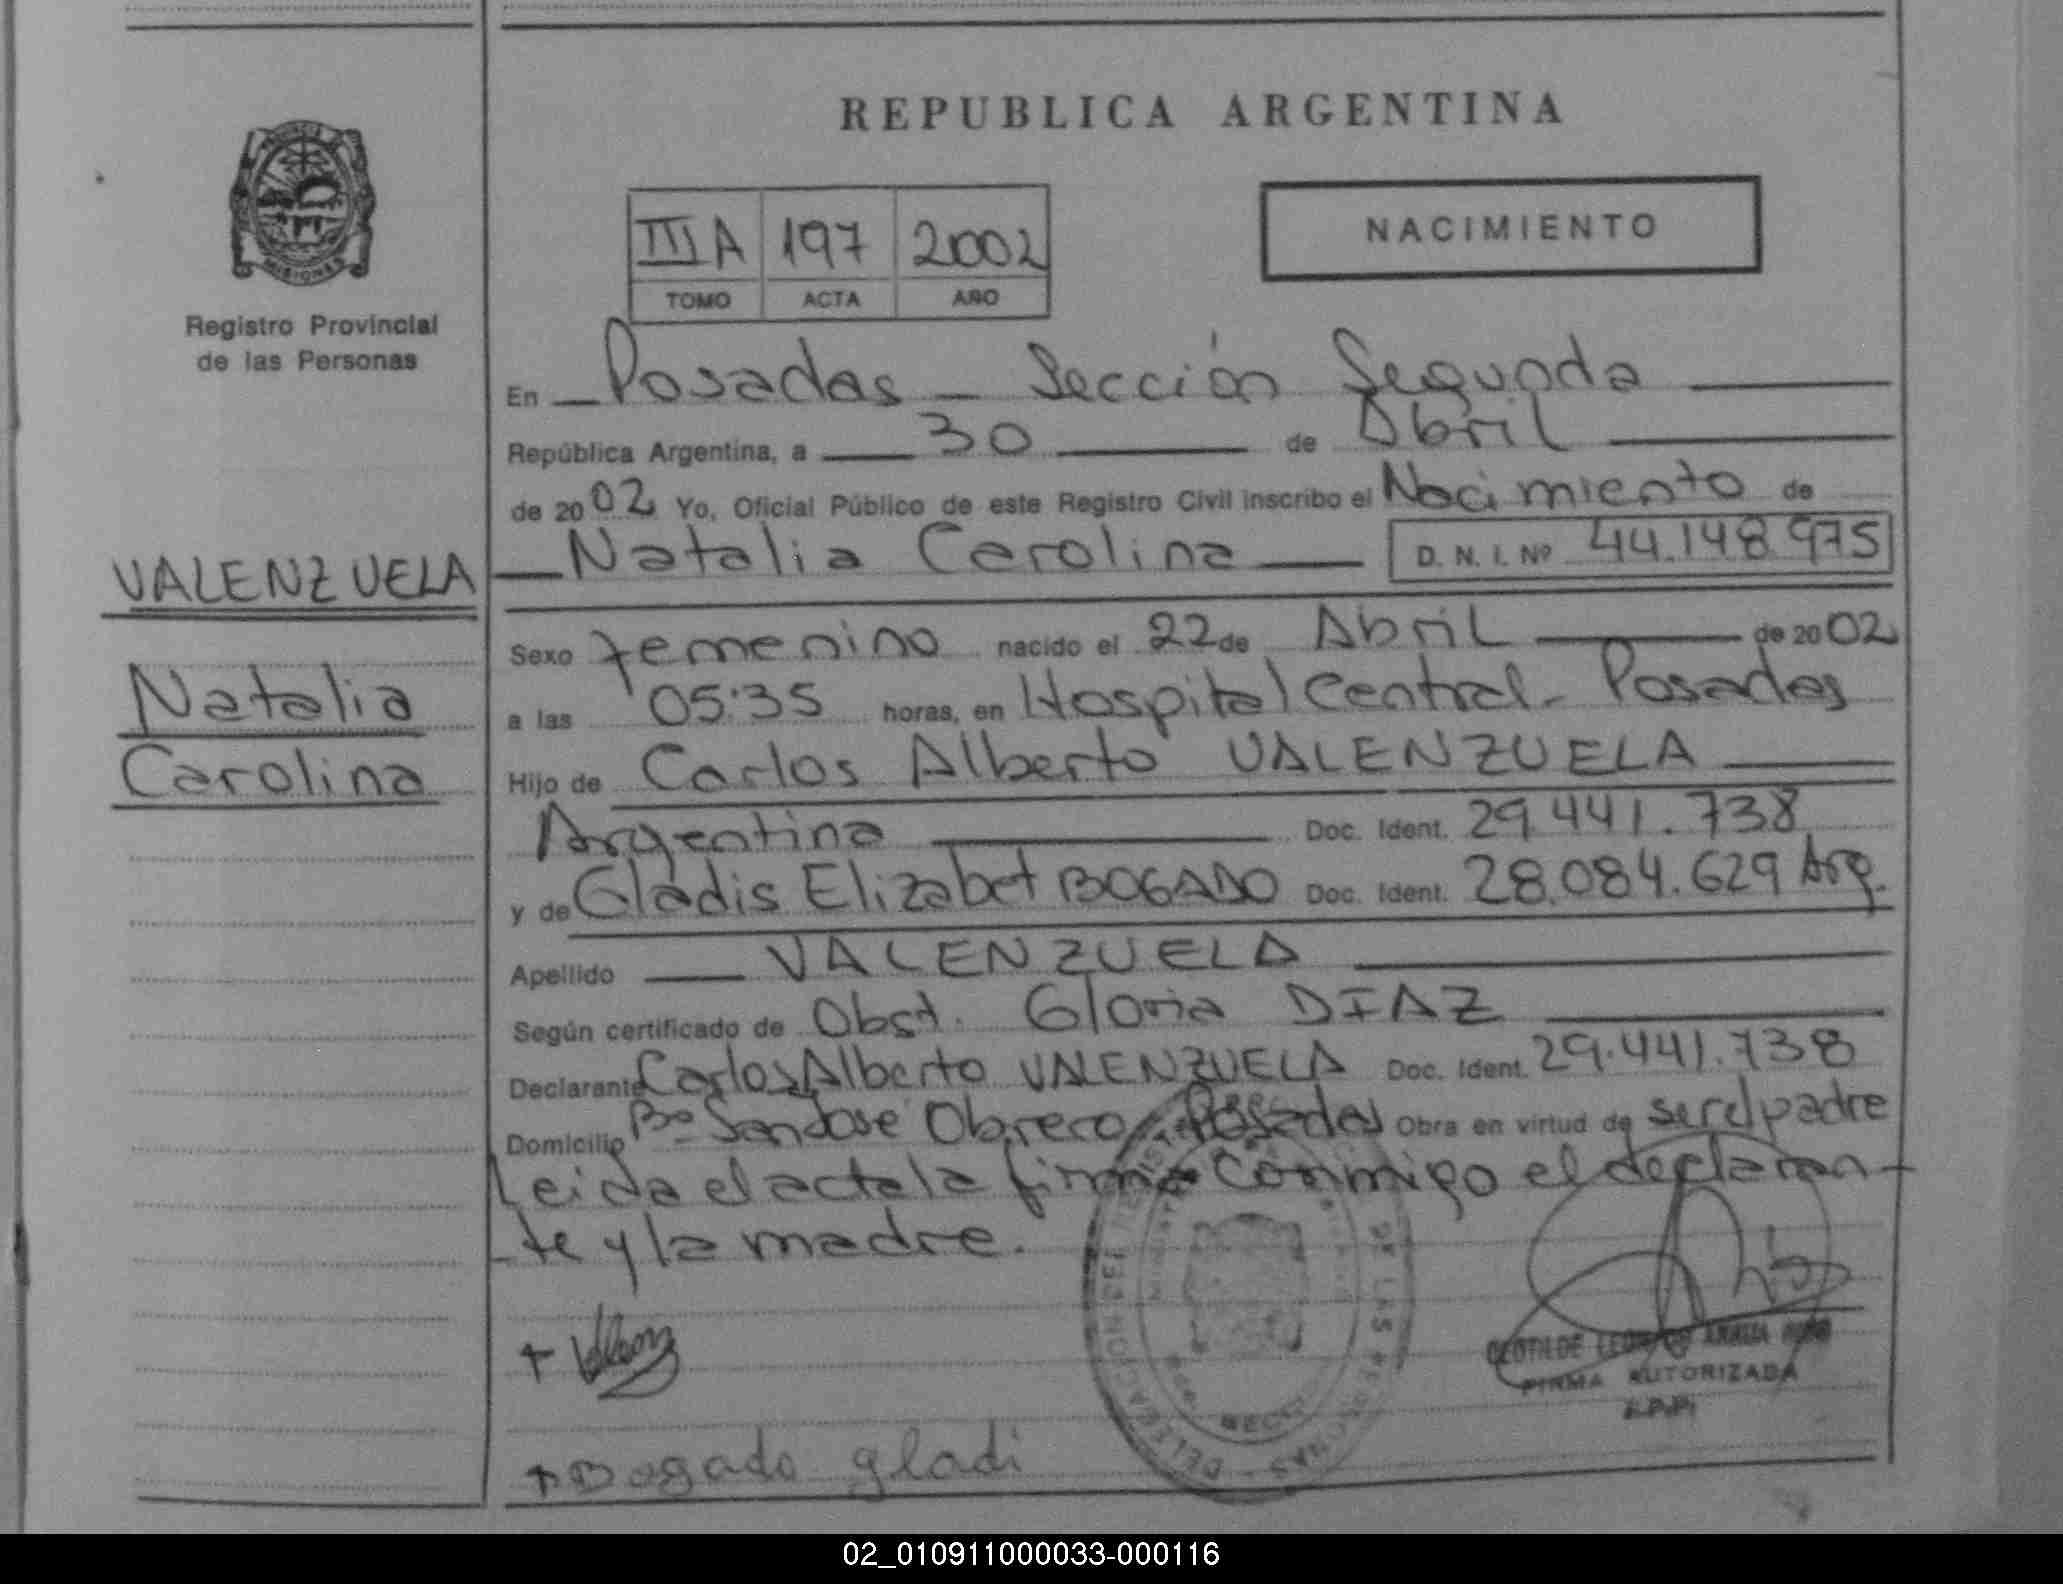 REPUBLICA ARGENTINA
PROVINCIA
MISIONES
Registro Provincial
de las Personas
NACIMIENTO
III A 197 2002
TOMO ACTA AÑO
En Posadas - Sección Segunda
República Argentina, a 30 de Abril
de 2002 Yo, Oficial Público de este Registro Civil inscribo el Nacimiento de
VALENZUELA
Natalia Carolina D. N. I. Nº 44.148.975
Natalia
Carolina
Sexo femenino nacido el 22 de Abril de 2002
a las 05:35 horas, en Hospital Central - Posadas
Hijo de Carlos Alberto VALENZUELA
Argentina Doc. Ident. 29.441.738
y de Gladis Elizabet BOGADO Doc. Ident. 28.084.629 Arg.
Apellido VALENZUELA
Según certificado de Obst. Gloria DIAZ
Declarante Carlos Alberto VALENZUELA Doc. Ident. 29.441.738
Domicilio Bº San Jose Obrero Posadas Obra en virtud de ser el padre
Leida el acta la firma conmigo el declaran-
te y la madre.
DE LAS PERSONAS
FIRMA AUTORIZADA
+ Bogado gladi
02_010911000033-000116